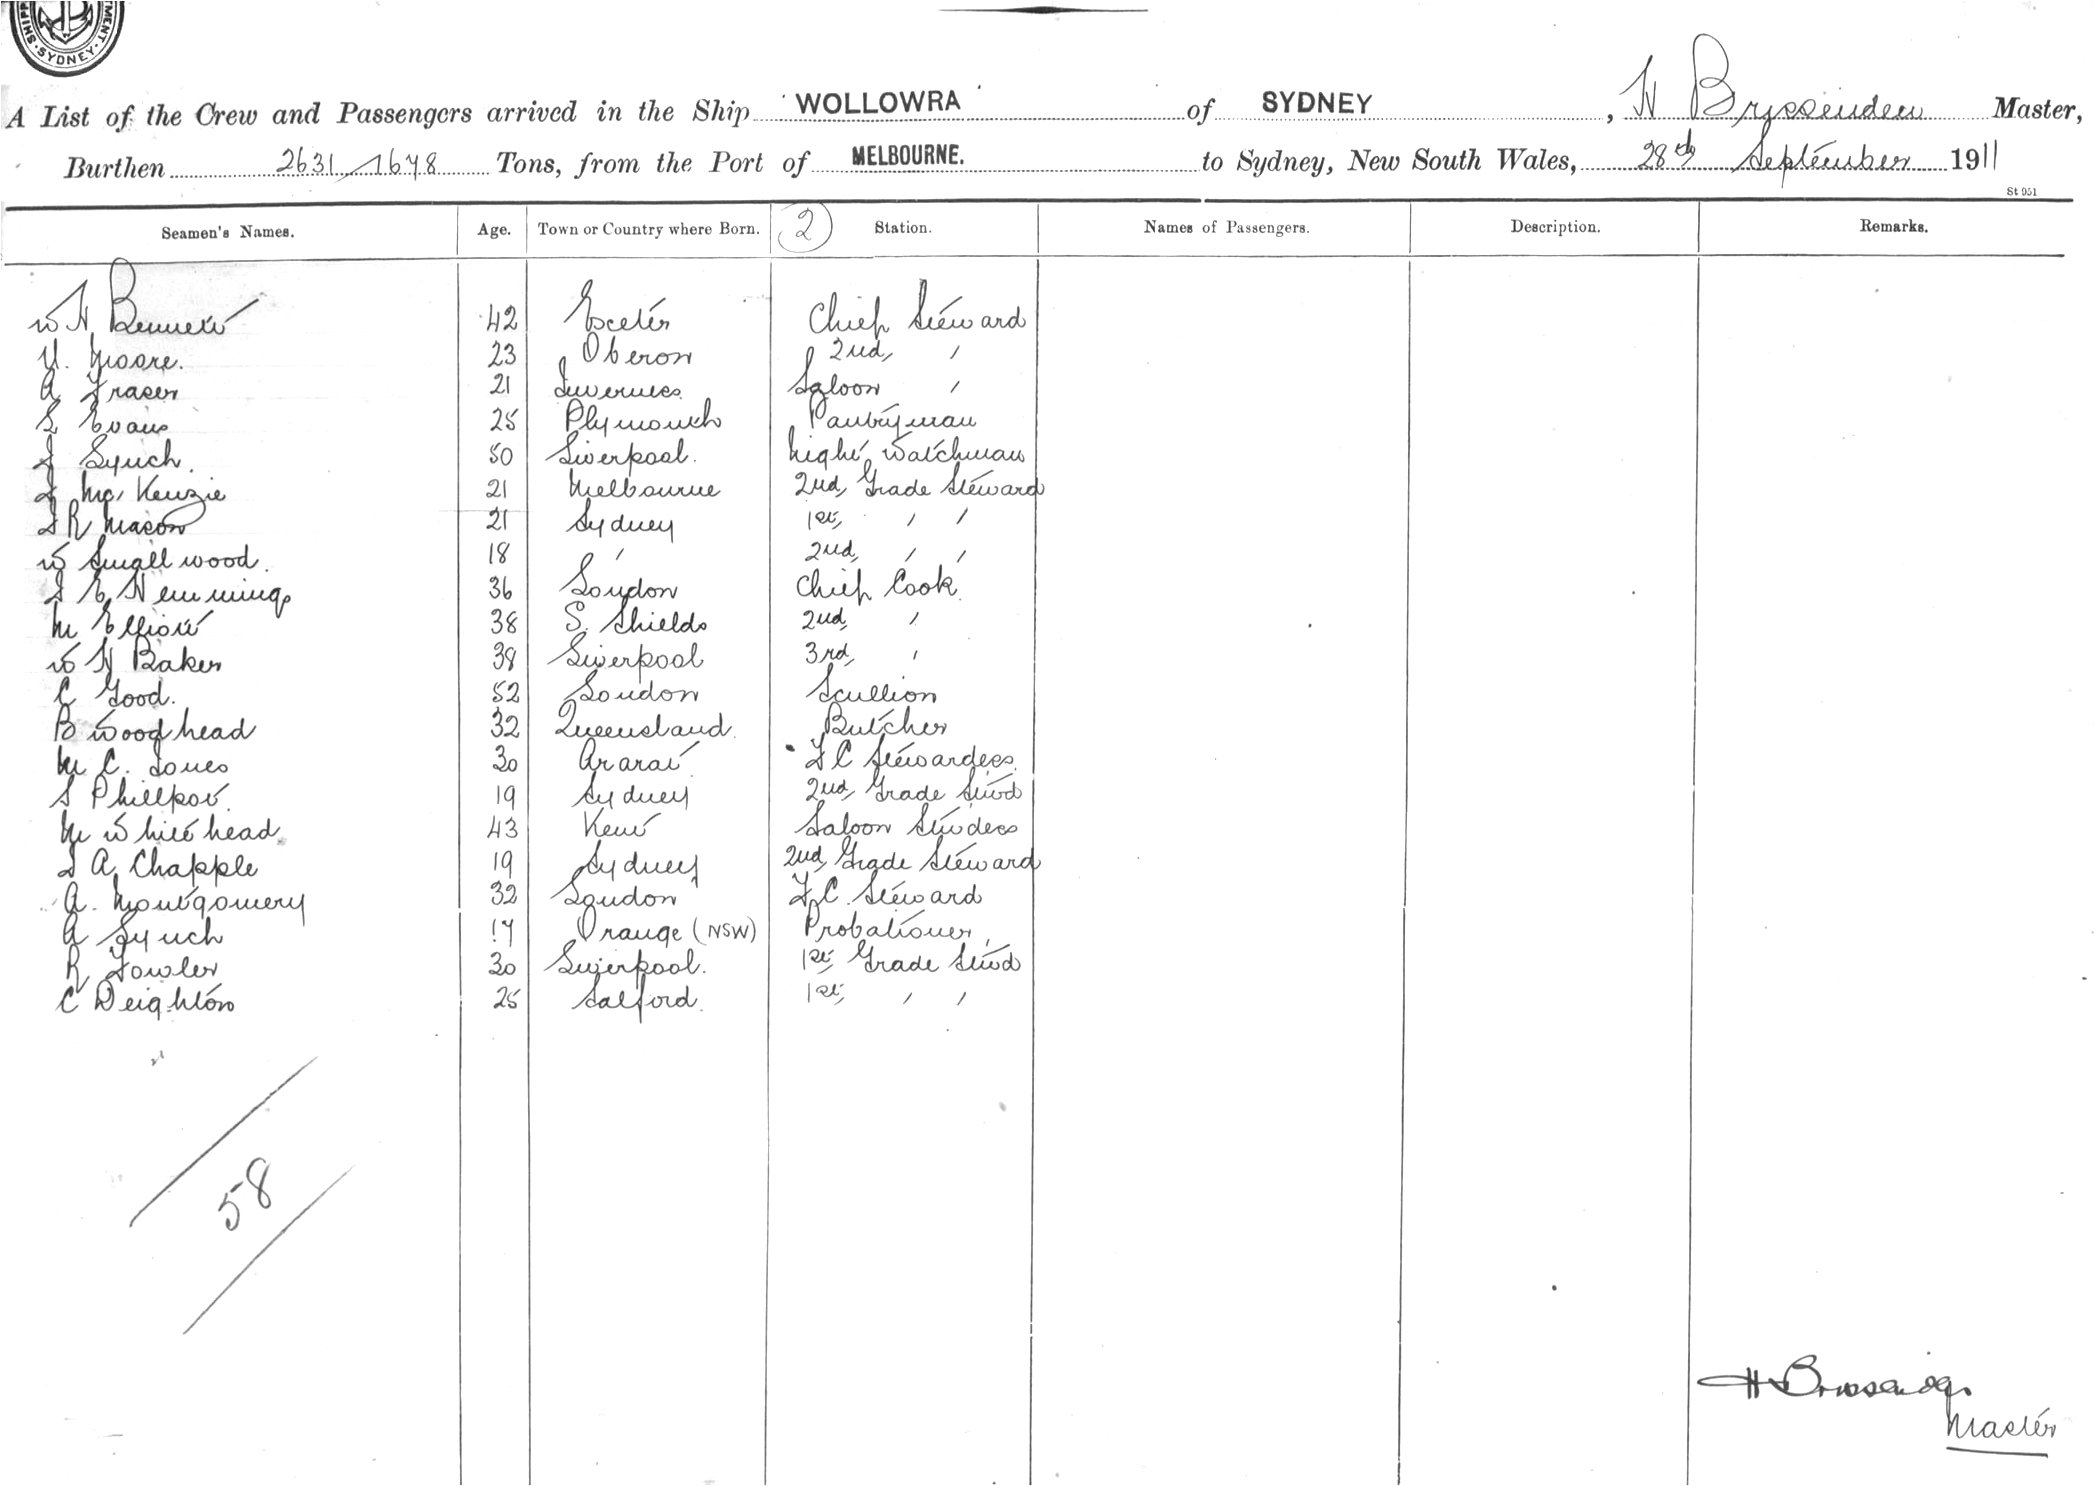 SYDNEY
A List of the Crew and Passengers arrived in the Ship WOLLOWRA of SYDNEY, H Brissenden Master,
Burthen 2631/1678 Tons, from the Port of MELBOURNE. to Sydney, New South Wales, 28th September 1911
St 951
Seamen's Names. Age. Town or Country where Born. 2 Station. Names of Passengers. Description. Remarks.
W H Bennett 42 Exeter Chief Steward
U. Moore. 23 Oberon 2nd "
A Fraser 21 Inverness Saloon "
S Evans 25 Plymouth Pantryman
J Lynch. 50 Liverpool. Night Watchman
J McKenzie 21 Melbourne 2nd Grade Steward
J R Mason 21 Sydney 1st " "
W Smallwood. 18 " 2nd " "
J E Hemmings 36 London Chief Cook
M Elliott 38 S. Shields 2nd "
W H Baker 38 Liverpool 3rd "
C Good. 52 London Scullion
B Woodhead 32 Queensland. Butcher
M C. Jones 30 Ararat F C Stewardess
S Phillpot. 19 Sydney 2nd Grade Stwd
M Whitehead. 43 Kent Saloon Stwdess
J A Chapple 19 Sydney 2nd Grade Steward
A. Montgomery 32 London F.C. Steward
A Lynch 17 Orange (NSW) Probationer
R Fowler 30 Liverpool. 1st Grade Stwd
C Deighton 25 Salford. 1st " "
58
H Brissenden
Master